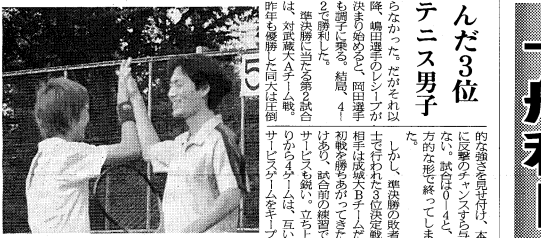 んだ3位
テニス男子
らなかった。だがそれ以
降、嶋田選手のレシーブが
決まり始めると、岡田選手
も調子に乗る。結局、4―
2で勝利した。
　準決勝に当たる第2試合
は、対武蔵大Aチーム戦。
昨年も優勝した同大は圧倒
的な強さを見せ付け、本
に反撃のチャンスすら与
ない。試合は0―4と、
方的な形で終ってしま
た。
　しかし、準決勝の敗者
士で行われた3位決定戦
相手は成城大Bチームだ
初戦を勝ちあがってきた
けあり、試合前の練習で
サービスも鋭い。立ち上
りから4ゲームは、互い
サービスゲームをキープ
5